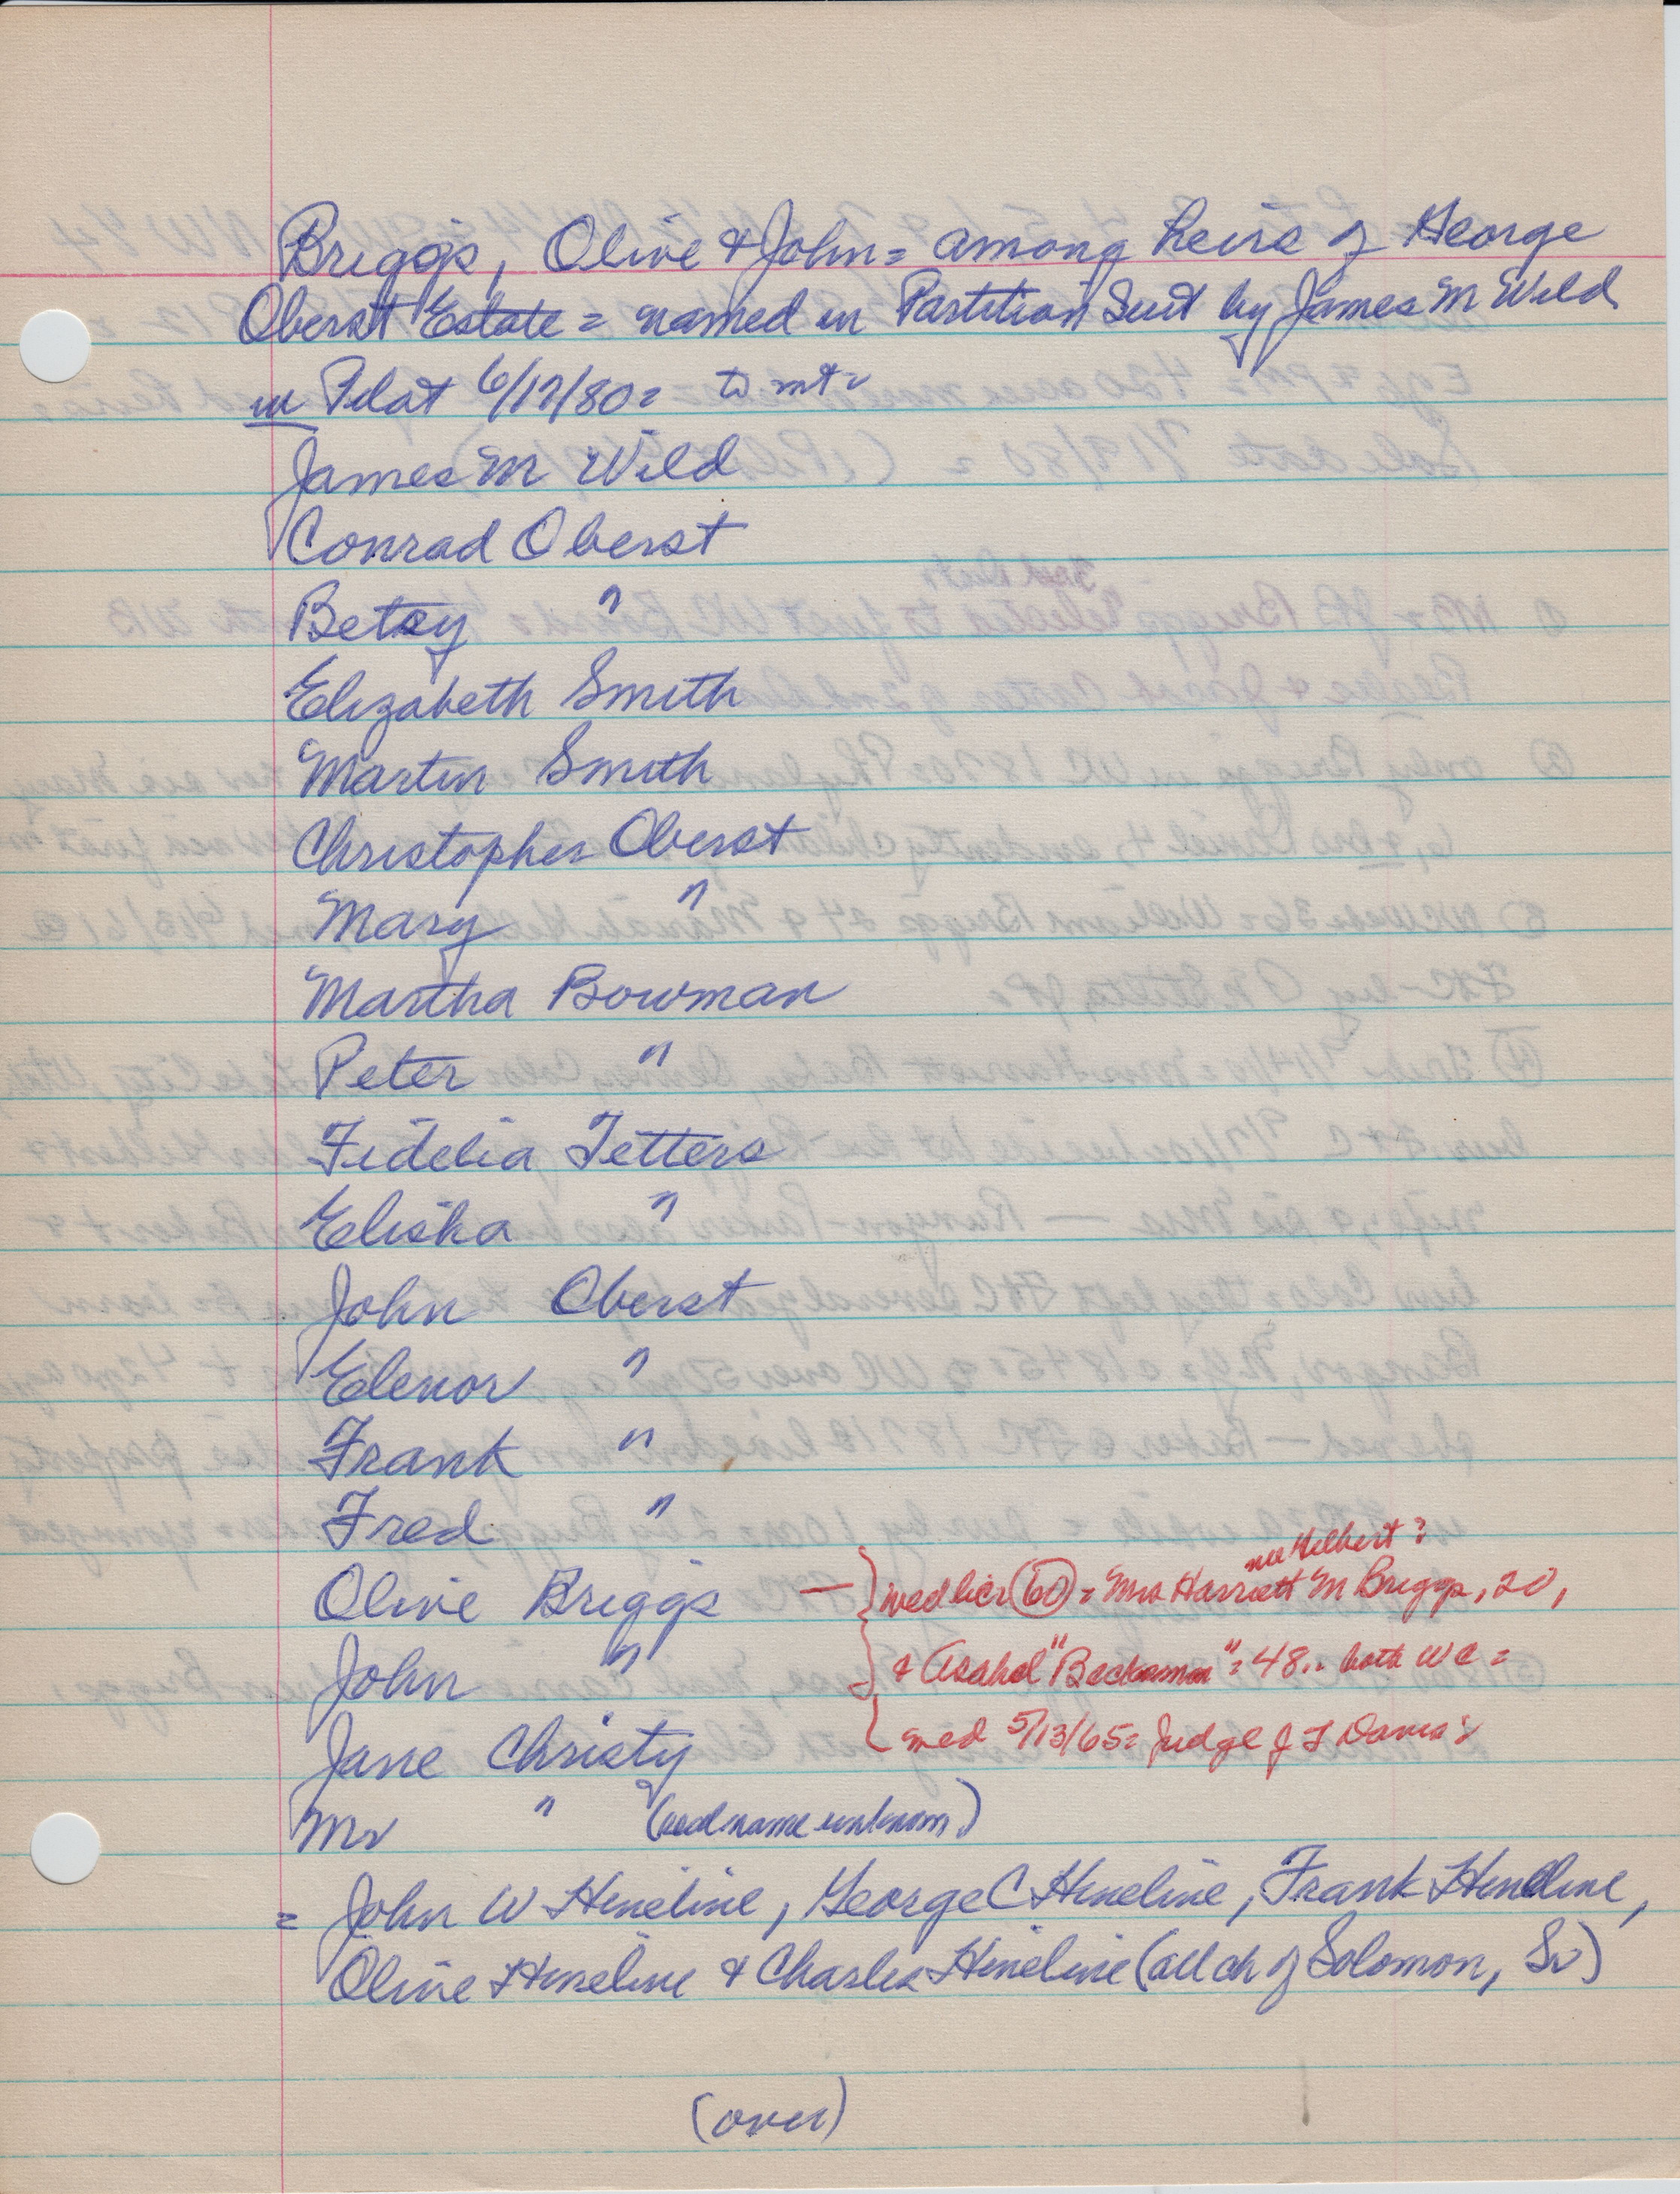 Briggs, Olive & John = among heirs of George
Oberst Estate = named in Partition Suit by James M Wild
in Pdat 6/17/80 = to wit =
James M Wild
Conrad Oberst
Betsy "
Elizabeth Smith
Martin Smith
Christopher Oberst
Mary "
Martha Bowman
Peter "
Fidelia Tetters
Elisha "
John Oberst
Elenor "
Frank "
Fred "
nee Helbert?
Olive Briggs — wed lics (60) = Mrs Harriett M Briggs, 20,
John " & Asahel "Beckaman" = 48 .. both WC =
Jane Christy wed 5/13/65 = Judge J T Davis =
Mr " ( name unknown)
= John W Hineline, George C Hineline, Frank Hineline,
Olive Hineline & Charles Hineline (all ch of Solomon, Sr)
(over)